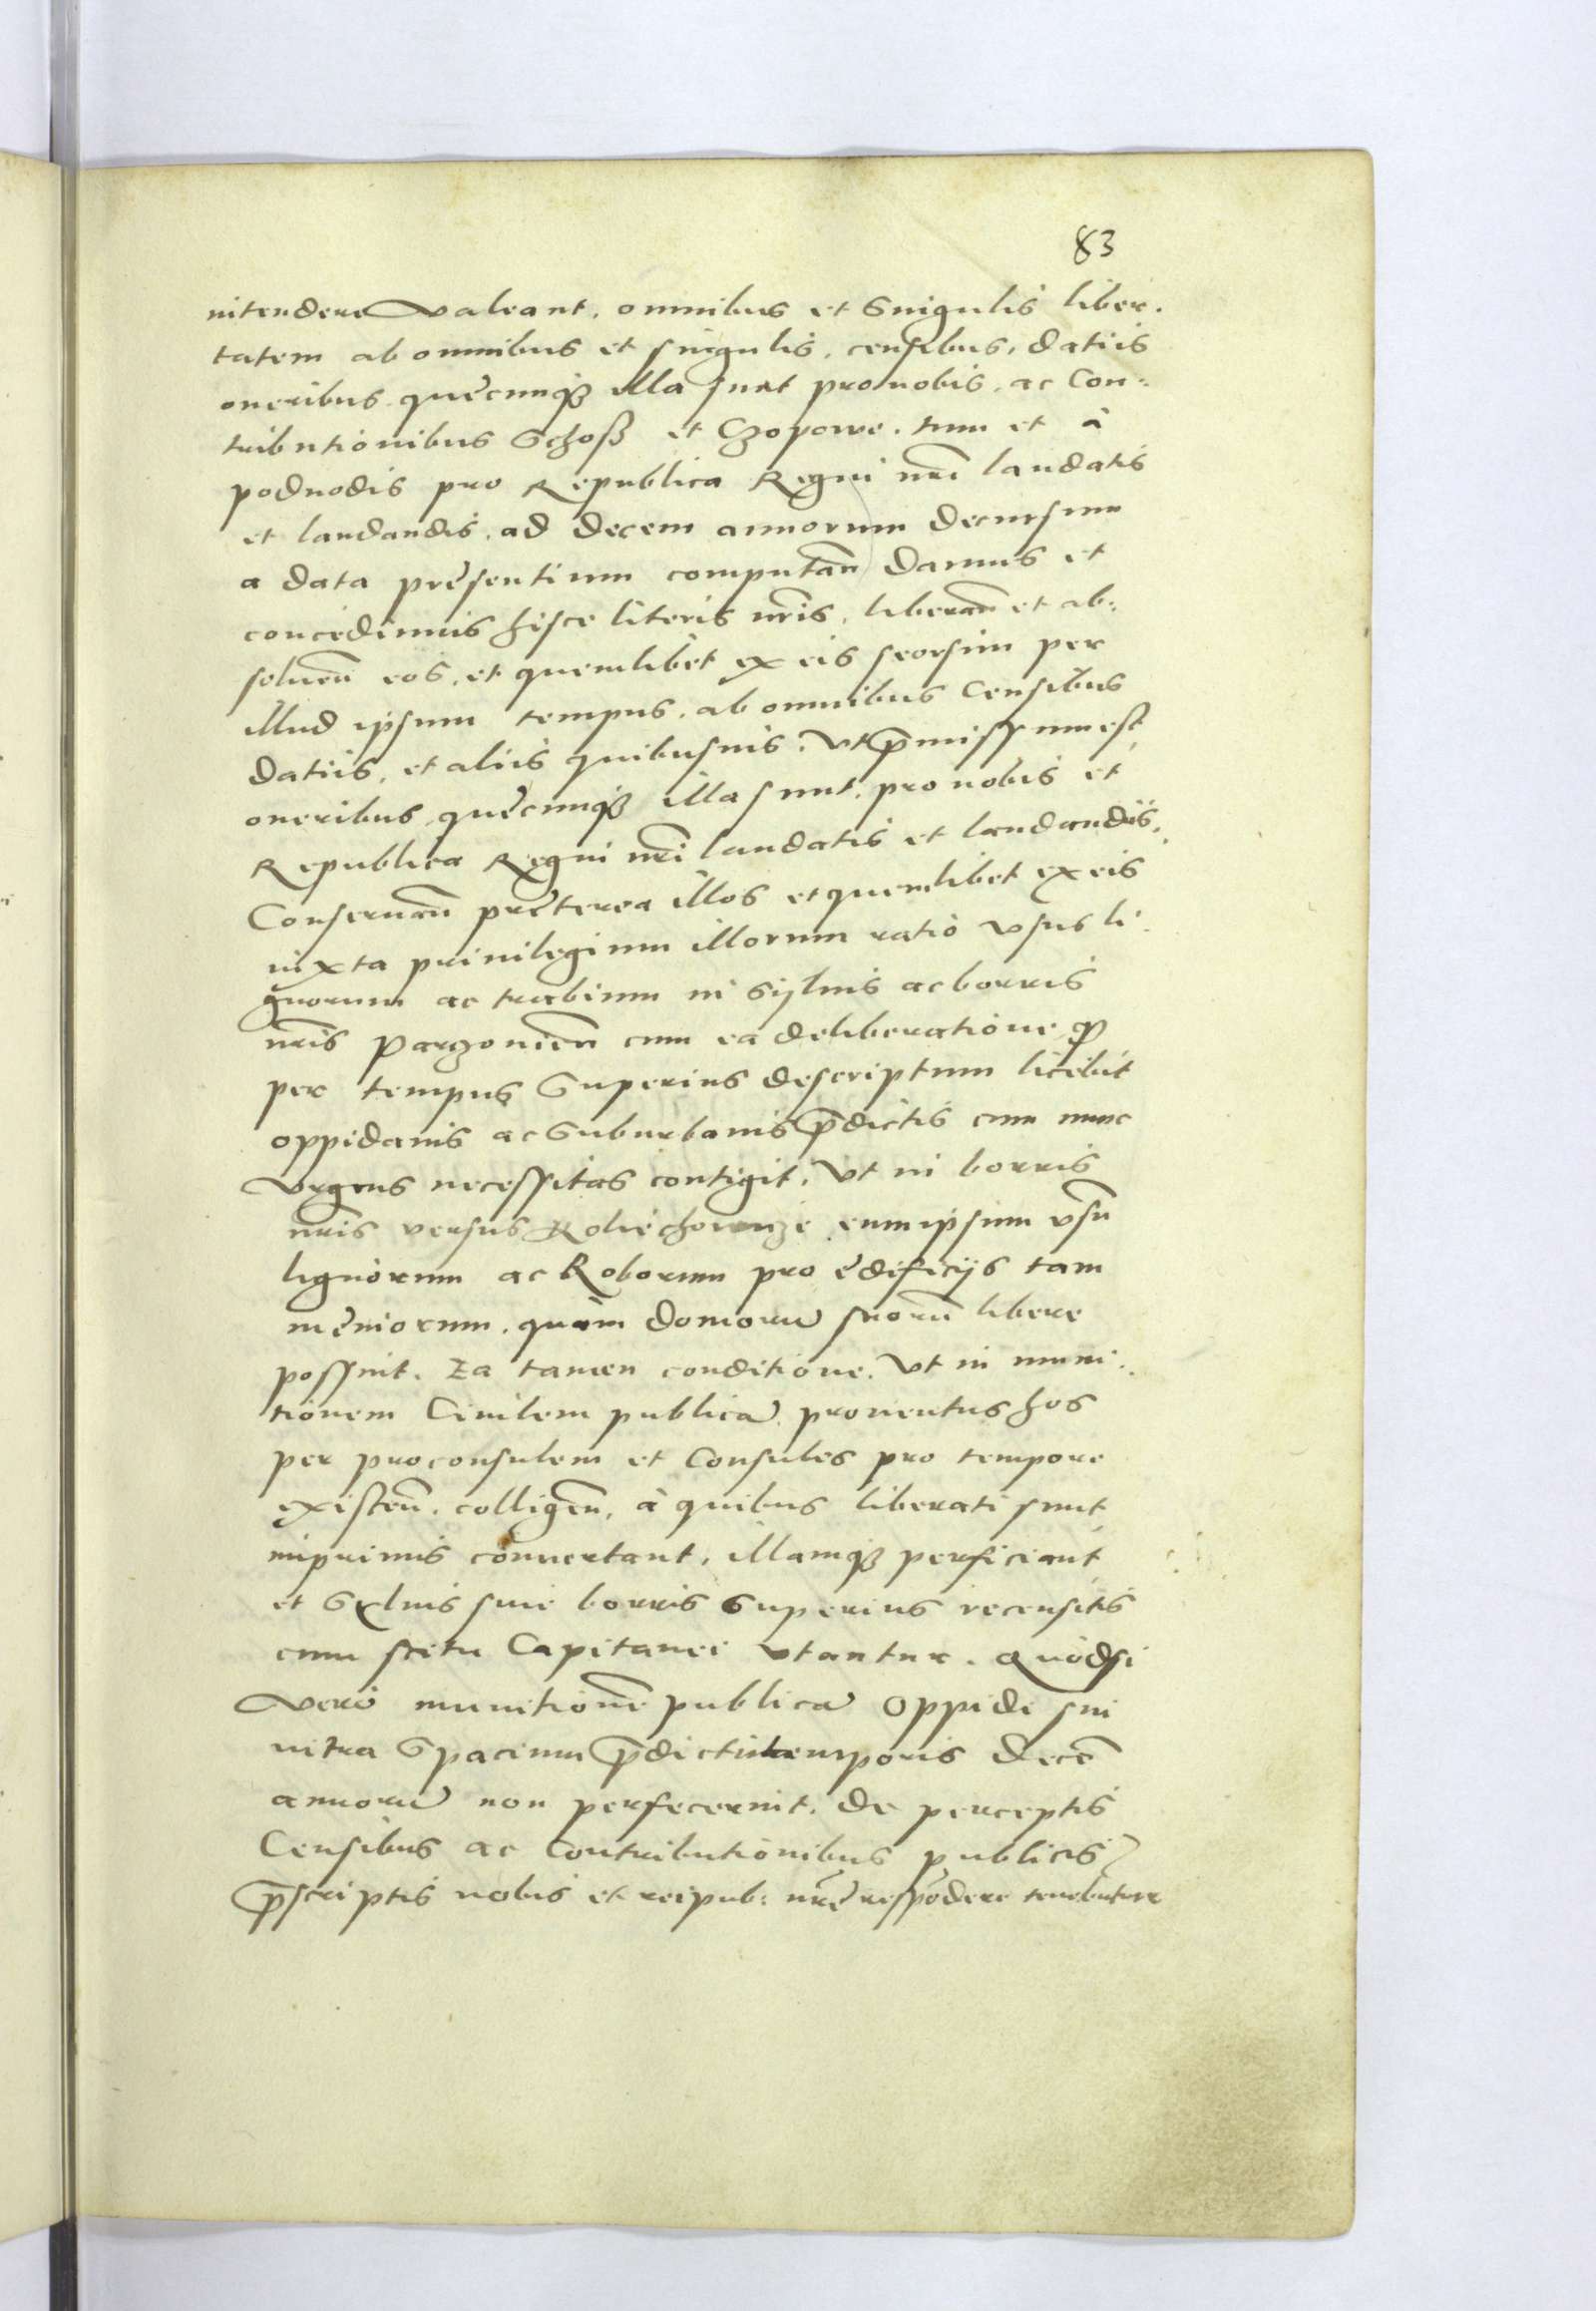 83
intendere valeant. omnibus et Singulis liber.
tatem ab omnibus et singulis, censibus, datiis
oneribus quęcunqȝ illa sunt pro nobis, ac Con:
tributionibus Schoß et Czopowe. tum et à
podvodis pro Republica Regni nr̃i laudatis
et laudandis, ad decem annorum decursum
a data pręsentium computan̄ damus et
concedimus hisce literis nr̃is, liberan̄ et ab:
soluen̄ eos, et quemlibet ex eis seorsim per
illud ipsum tempus, ab omnibus Censibus
datiis, et aliis quibusuis, vt p̄missum est,
oneribus, quęcunqȝ illa sunt, pro nobis et
Republica Regni nr̃i laudatis et laudandis.
Conseruan̄ pręterea illos et quemlibet ex eis
iuxta priuilegium illorum ratio vsus li.
gnorum ac trabium in Syluis ac borris
nr̃is Parczouien̄ cum ea deliberatione, qđ
per tempus Superius descriptum licebit
oppidanis ac Suburbanis p̄dictis cum nunc
vrgens necessitas contigit, vt in borris
nr̃is versus eum ipsum vsū
lignorum ac Roborum pro ędificijs tam
męniorum, quàm domorū suorū libere
possint. Ea tamen conditione, vt in muni:
tionem Ciuilem publicā, prouentus hos
per proconsulem et Consules pro tempore
existen̄. colligen̄, à quibus liberati sunt,
inprimis conuertant, illamqȝ perficiant,
et Syluis siue borris Superius recensitis
cum scitu Capitanei vtantur. Quòdsi
verò munitionē publicā Oppidi sui
intra Spacium p̄dicti temporis decē
annorū non perfecerint, de perceptis
Censibus ac Contributionibus publicis
p̄scriptis nobis et reipub: nr̃ę respōdere tenebuntur